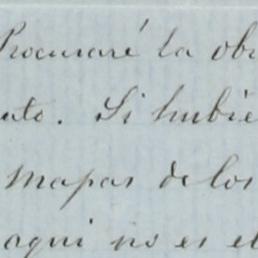 Procuraré la ob
uto. Si hubie
mapas de los
aqui no es el